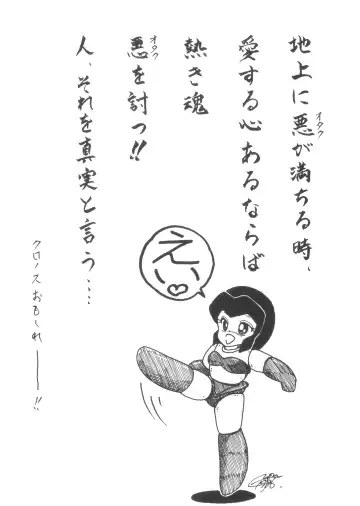 地上に悪が満ちる時、
オタク
愛する心あるならば
熱き魂
悪を討つ!!
オタク
人、それを真実と言う…
クロノスおもしれー!!
えい♡